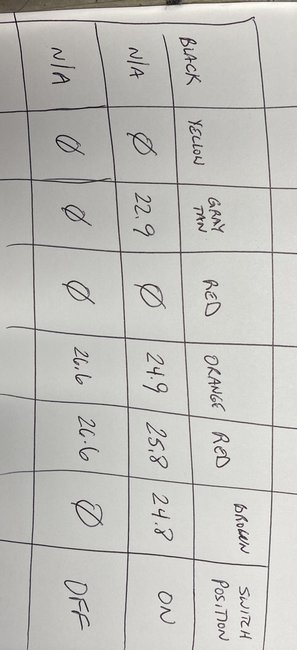 BLACK YELLOW GRAY TAN RED ORANGE RED BROWN SWITCH POSITION
N/A Ø 22.9 Ø 24.9 25.8 24.8 ON
N/A Ø Ø Ø 26.6 26.6 Ø OFF